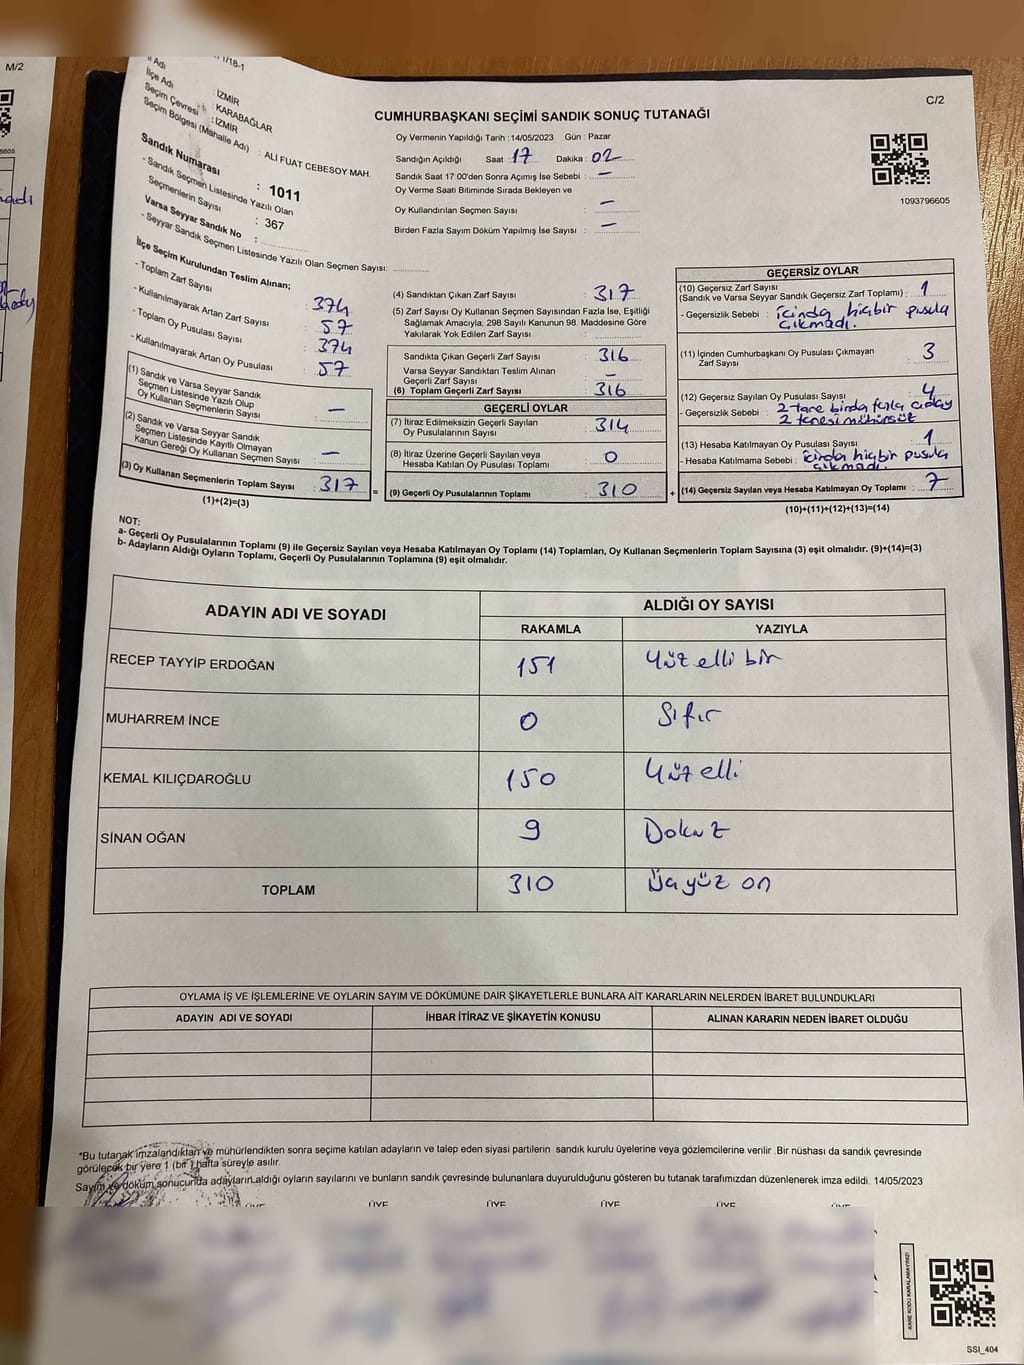 M/2
1/18-1
İl Adı : İZMİR
İlçe Adı : KARABAĞLAR
Seçim Çevresi : İZMİR
Seçim Bölgesi (Mahalle Adı) : ALİ FUAT CEBESOY MAH.
Sandık Numarası : 1011
- Sandık Seçmen Listesinde Yazılı Olan
Seçmenlerin Sayısı : 367
Varsa Seyyar Sandık No :
- Seyyar Sandık Seçmen Listesinde Yazılı Olan Seçmen Sayısı:
CUMHURBAŞKANI SEÇİMİ SANDIK SONUÇ TUTANAĞI
C/2
Oy Vermenin Yapıldığı Tarih :14/05/2023 Gün : Pazar
Sandığın Açıldığı Saat : 17 Dakika : 02
Sandık Saat 17:00'den Sonra Açımış İse Sebebi : —
Oy Verme Saati Bitiminde Sırada Bekleyen ve
Oy Kullandırılan Seçmen Sayısı : —
Birden Fazla Sayım Döküm Yapılmış İse Sayısı : —
1093796605
İlçe Seçim Kurulundan Teslim Alınan;
- Toplam Zarf Sayısı : 374
- Kullanılmayarak Artan Zarf Sayısı : 57
- Toplam Oy Pusulası Sayısı : 374
- Kullanılmayarak Artan Oy Pusulası : 57
(1) Sandık ve Varsa Seyyar Sandık
Seçmen Listesinde Yazılı Olup
Oy Kullanan Seçmenlerin Sayısı : —
(2) Sandık ve Varsa Seyyar Sandık
Seçmen Listesinde Kayıtlı Olmayan
Kanun Gereği Oy Kullanan Seçmen Sayısı : —
(3) Oy Kullanan Seçmenlerin Toplam Sayısı : 317 =
(1)+(2)=(3)
(4) Sandıktan Çıkan Zarf Sayısı : 317
(5) Zarf Sayısı Oy Kullanan Seçmen Sayısından Fazla İse, Eşitliği
Sağlamak Amacıyla, 298 Sayılı Kanunun 98. Maddesine Göre
Yakılarak Yok Edilen Zarf Sayısı :
Sandıkta Çıkan Geçerli Zarf Sayısı : 316
Varsa Seyyar Sandıktan Teslim Alınan
Geçerli Zarf Sayısı : —
(6) Toplam Geçerli Zarf Sayısı : 316
GEÇERLİ OYLAR
(7) İtiraz Edilmeksizin Geçerli Sayılan
Oy Pusulalarının Sayısı : 314
(8) İtiraz Üzerine Geçerli Sayılan veya
Hesaba Katılan Oy Pusulası Toplamı : 0
(9) Geçerli Oy Pusulalarının Toplamı : 310 +
GEÇERSİZ OYLAR
(10) Geçersiz Zarf Sayısı
(Sandık ve Varsa Seyyar Sandık Geçersiz Zarf Toplamı) : 1
- Geçersizlik Sebebi : içinda hiçbir pusula
çıkmadı.
(11) İçinden Cumhurbaşkanı Oy Pusulası Çıkmayan
Zarf Sayısı : 3
(12) Geçersiz Sayılan Oy Pusulası Sayısı : 4
- Geçersizlik Sebebi : 2 tane birda fazla aday
2 tanesi mühürsüz
(13) Hesaba Katılmayan Oy Pusulası Sayısı : 1
- Hesaba Katılmama Sebebi : içinda hiçbir pusula
çıkmadı.
(14) Geçersiz Sayılan veya Hesaba Katılmayan Oy Toplamı : 7
(10)+(11)+(12)+(13)=(14)
NOT:
a- Geçerli Oy Pusulalarının Toplamı (9) ile Geçersiz Sayılan veya Hesaba Katılmayan Oy Toplamı (14) Toplamları, Oy Kullanan Seçmenlerin Toplam Sayısına (3) eşit olmalıdır. (9)+(14)=(3)
b- Adayların Aldığı Oyların Toplamı, Geçerli Oy Pusulalarının Toplamına (9) eşit olmalıdır.
ADAYIN ADI VE SOYADI ALDIĞI OY SAYISI
RAKAMLA YAZIYLA
RECEP TAYYİP ERDOĞAN 151 Yüz elli bir
MUHARREM İNCE 0 Sıfır
KEMAL KILIÇDAROĞLU 150 Yüz elli
SİNAN OĞAN 9 Dokuz
TOPLAM 310 Üçyüz on
OYLAMA İŞ VE İŞLEMLERİNE VE OYLARIN SAYIM VE DÖKÜMÜNE DAİR ŞİKAYETLERLE BUNLARA AİT KARARLARIN NELERDEN İBARET BULUNDUKLARI
ADAYIN ADI VE SOYADI İHBAR İTİRAZ VE ŞİKAYETİN KONUSU ALINAN KARARIN NEDEN İBARET OLDUĞU
*Bu tutanak imzalandıktan ve mühürlendikten sonra seçime katılan adayların ve talep eden siyasi partilerin sandık kurulu üyelerine veya gözlemcilerine verilir .Bir nüshası da sandık çevresinde
görülecek bir yere 1 (bir ) hafta süreyle asılır.
Sayım ve döküm sonucunda adayların aldığı oyların sayılarını ve bunların sandık çevresinde bulunanlara duyurulduğunu gösteren bu tutanak tarafımızdan düzenlenerek imza edildi. 14/05/2023
ÜYE ÜYE ÜYE ÜYE ÜYE ÜYE
KARE KODU KARALAMAYINIZ!
SSİ_404